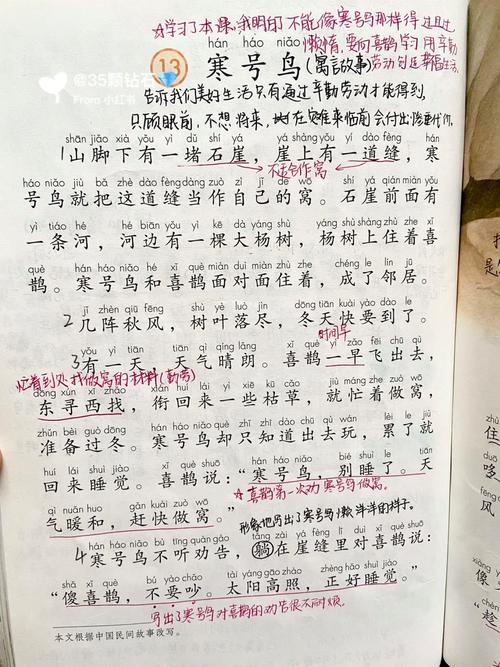 ☆学习了本课,我明白了不能像寒号鸟那样得过且过
懒惰,要向喜鹊学习用辛勤
劳动创造幸福生活。
@35颗钻石
From 小红书
hán háo niǎo
13 寒号鸟(寓言故事)
告诉我们美好生活只有通过辛勤劳动才能得到,
只顾眼前,不想将来,在灾难来临前会付出沉重代价。
shān jiǎo xià yǒu yì dǔ shí yá yá shàng yǒu yí dào fèng hán
1山脚下有一堵石崖,崖上有一道缝,寒
不适合作窝
háo niǎo jiù bǎ zhè dào fèng dàng zuò zì jǐ de wō shí yá qián miàn yǒu
号鸟就把这道缝当作自己的窝。石崖前面有
yì tiáo hé hé biān yǒu yì kē dà yáng shù yáng shù shàng zhù zhe xǐ
一条河,河边有一棵大杨树,杨树上住着喜
què hán háo niǎo hé xǐ què miàn duì miàn zhù zhe chéng le lín jū
鹊。寒号鸟和喜鹊面对面住着,成了邻居。
jǐ zhèn qiū fēng shù yè luò jìn dōng tiān kuài yào dào le
2几阵秋风,树叶落尽,冬天快要到了。
时间早
yǒu yì tiān tiān qì qíng lǎng xǐ què yì zǎo fēi chū qù
3有一天,天气晴朗。喜鹊一早飞出去,
忙着到处找做窝的材料(勤劳)
dōng xún xī zhǎo xián huí lái yì xiē kū cǎo jiù máng zhe zuò wō
东寻西找,衔回来一些枯草,就忙着做窝,
zhǔn bèi guò dōng hán háo niǎo què zhǐ zhī dào chū qù wán lèi le jiù
准备过冬。寒号鸟却只知道出去玩,累了就
huí lái shuì jiào xǐ què shuō hán háo niǎo bié shuì le tiān
回来睡觉。喜鹊说:“寒号鸟,别睡了。天
☆喜鹊第一次劝寒号鸟做窝。
qì nuǎn huo gǎn kuài zuò wō
气暖和,赶快做窝。”
形象地写出了寒号鸟懒洋洋的样子。
hán háo niǎo bù tīng quàn gào tǎng zài yá fèng lǐ duì xǐ què shuō
4寒号鸟不听劝告,躺在崖缝里对喜鹊说:
shǎ xǐ què bú yào chǎo tài yáng gāo zhào zhèng hǎo shuì jiào
“傻喜鹊,不要吵。太阳高照,正好睡觉。”
写出了寒号鸟对喜鹊的劝告很不耐烦。
本文根据中国民间故事改写。